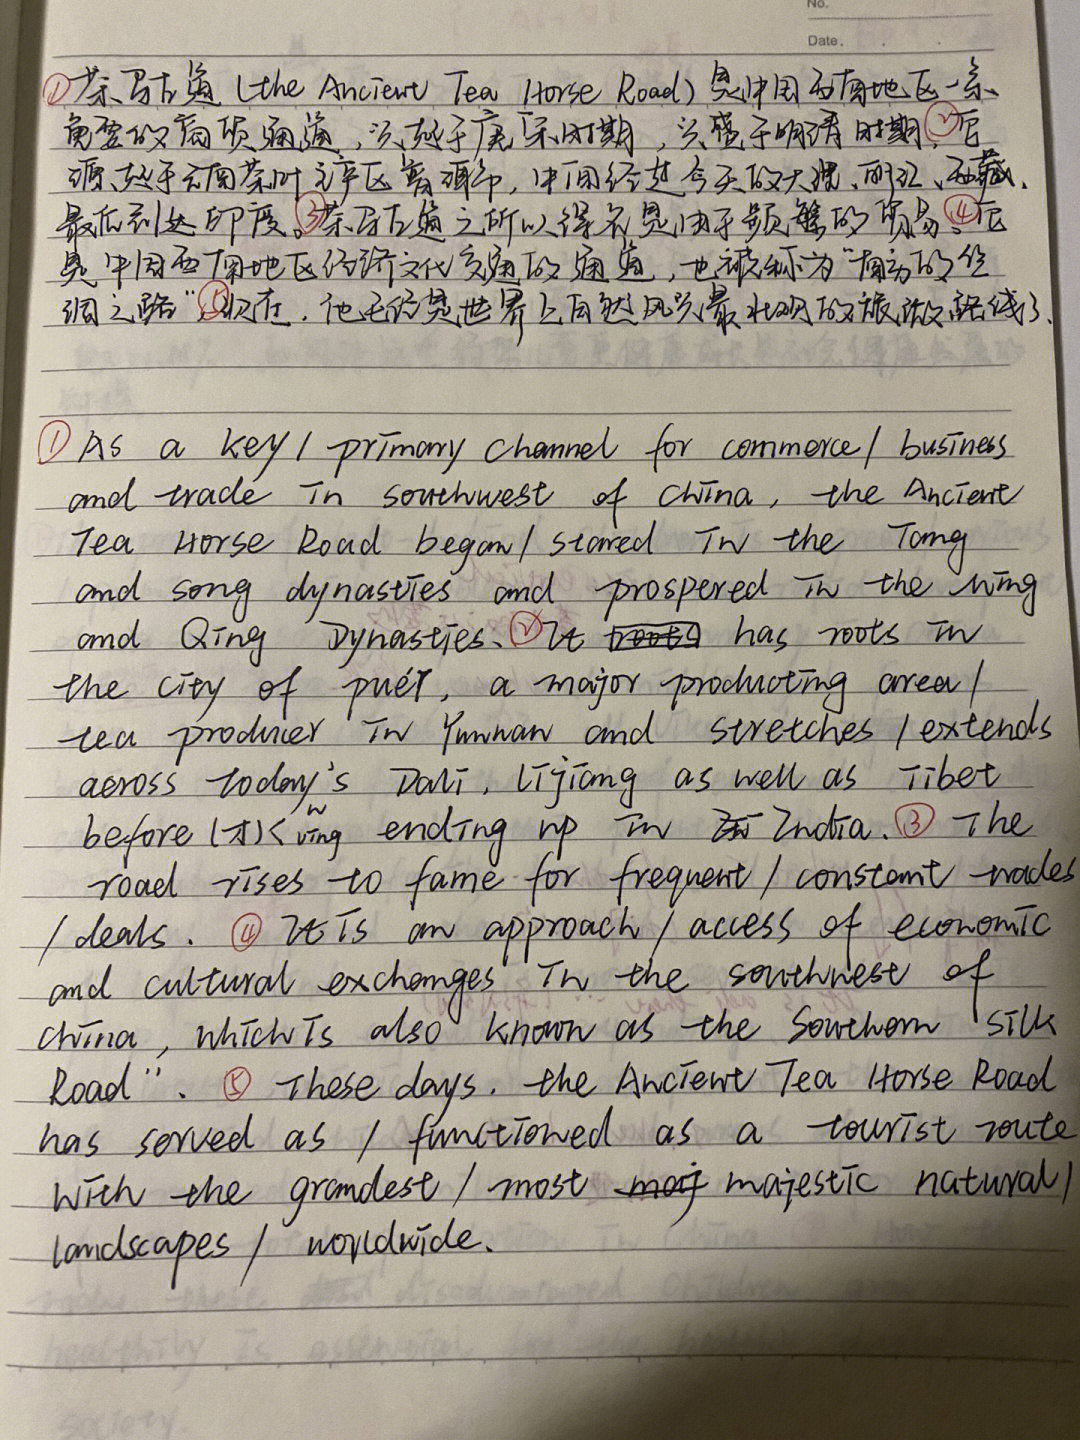 No.
Date.
①茶马古道 (the Ancient Tea Horse Road) 是中国西南地区一条
重要的商贸通道，兴起于唐宋时期，兴盛于明清时期。②它
源起于云南茶叶主产区普洱市，中间经过今天的大理、丽江、西藏，
最后到达印度。③茶马古道之所以得名是由于频繁的贸易。④它
是中国西南地区经济文化交通的通道，也被称为“南方的丝
绸之路”。⑤现在，他已经是世界上自然风光最壮观的旅游路线了.
① As a key / primary channel for commerce / business
and trade in southwest of China, the Ancient
Tea Horse Road began / stared in the Tang
and song dynasties and prospered in the Ming
and Qing Dynasties. ② It roots has roots in
the city of puér, a major producting area /
tea producer in Yunnan and stretches / extends
across today's Dali, Lijiang as well as Tibet
before ending up in India. ③ The
road rises to fame for frequent / constant trades
/ deals. ④ It is an approach / access of economic
and cultural exchanges in the southwest of
China, which is also known as the "Southern silk
Road". ⑤ These days, the Ancient Tea Horse Road
has served as / functioned as a tourist route
with the grandest / most maj majestic natural /
landscapes / worldwide.